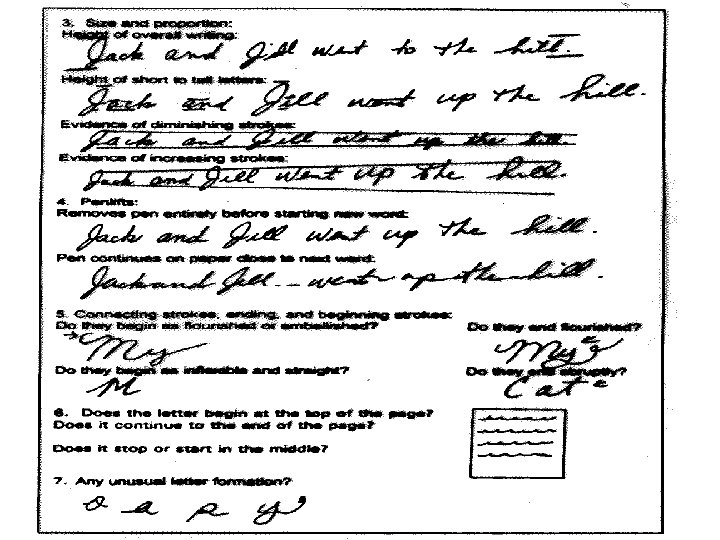 3. Size and proportion:
Height of overall writing:
Jack and Jill went to the hill.
Height of short to tall letters:
Jack and Jill went up the hill.
Evidence of diminishing strokes:
Jack and Jill went up the hill.
Evidence of increasing strokes:
Jack and Jill went up the hill.
4. Penlifts:
Removes pen entirely before starting new word:
Jack and Jill went up the hill.
Pen continues on paper close to next word:
Jack and Jill went up the hill.
5. Connecting strokes, ending, and beginning strokes:
Do they begin as flourished or embellished? Do they end flourished?
My My
Do they begin as inflexible and straight? Do they end abruptly?
M Cat
6. Does the letter begin at the top of the page?
Does it continue to the end of the page?
Does it stop or start in the middle?
7. Any unusual letter formation?
o a p y